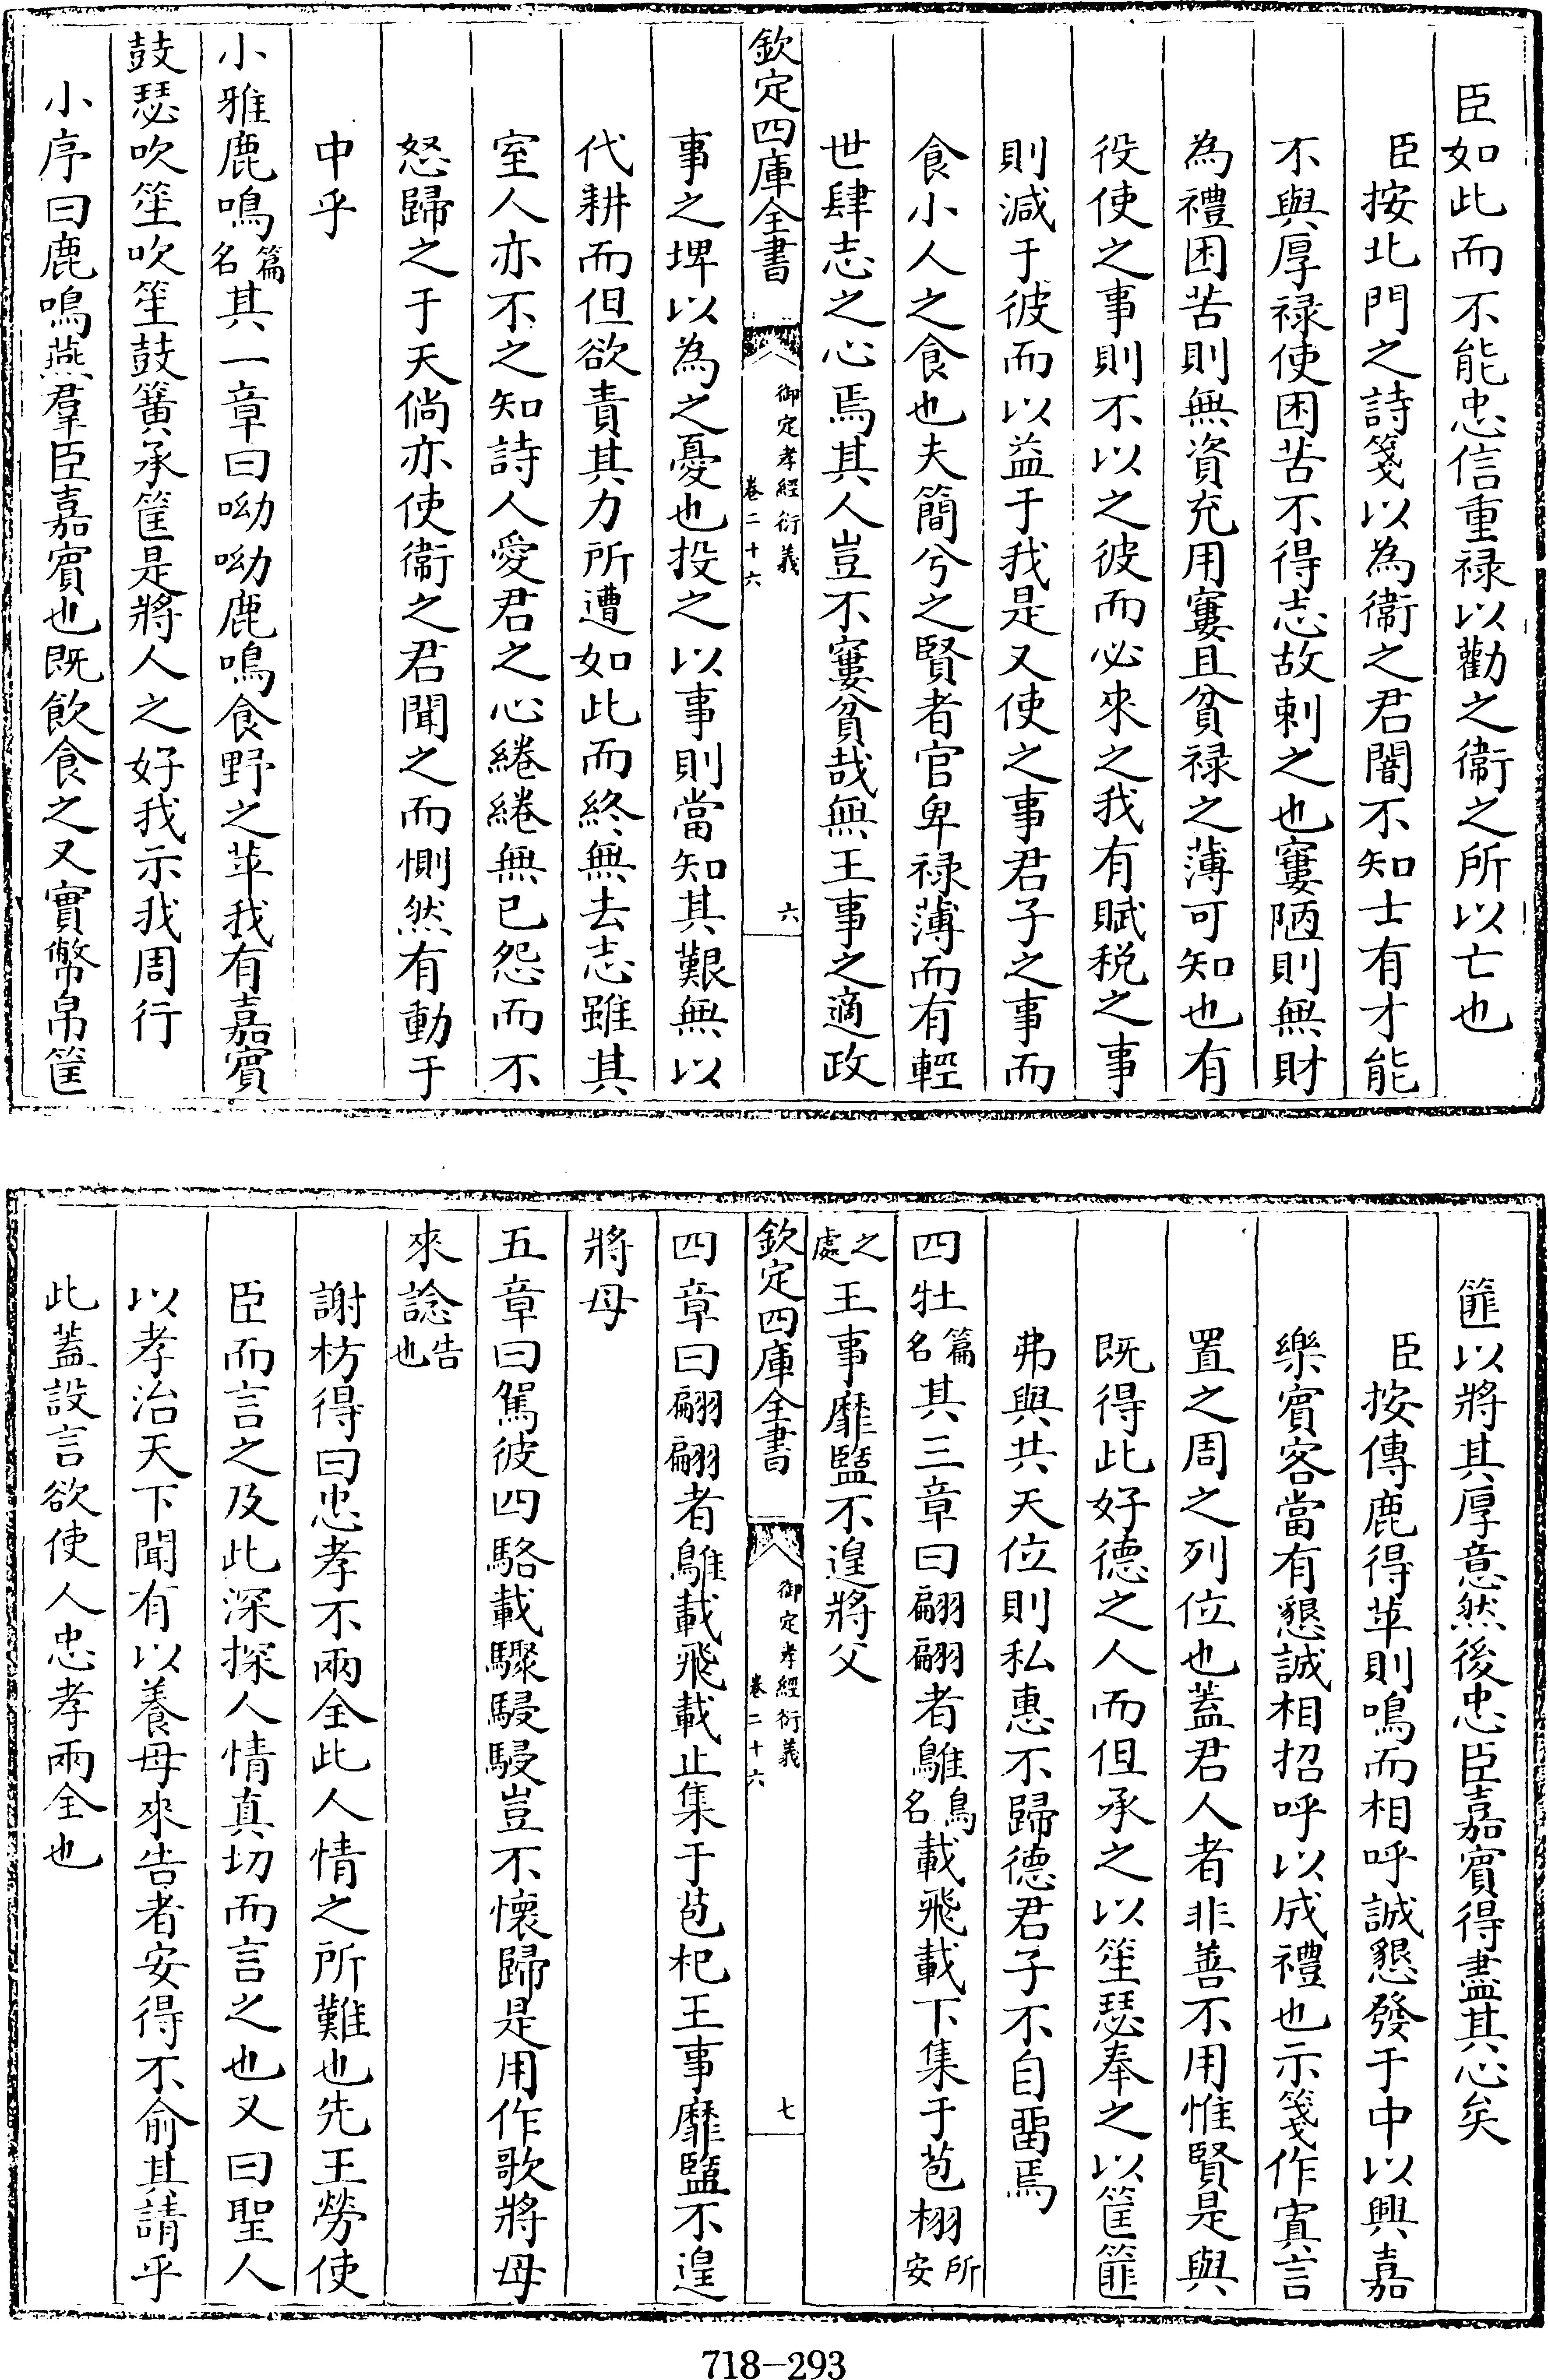 臣如此而不能忠信重禄以勸之衞之所以亡也
臣按北門之詩箋以為衞之君闇不知士有才能
不與厚禄使困苦不得志故刺之也窶陋則無財
為禮困苦則無資充用窶且貧禄之薄可知也有
役使之事則不以之彼而必來之我有賦税之事
則減于彼而以益于我是又使之事君子之事而
食小人之食也夫簡兮之賢者官卑禄薄而有輕
世肆志之心焉其人豈不窶貧哉無王事之適政
欽定四庫全書
御定孝經衍義
卷二十六
六
事之埤以為之憂也投之以事則當知其艱無以
代耕而但欲責其力所遭如此而終無去志雖其
室人亦不之知詩人愛君之心綣綣無已怨而不
怒歸之于天倘亦使衞之君聞之而惻然有動于
中乎
小雅鹿鳴篇名其一章曰呦呦鹿鳴食野之苹我有嘉賔
鼓瑟吹笙吹笙鼓簧承筐是將人之好我示我周行
小序曰鹿鳴燕羣臣嘉賔也既飲食之又實幣帛筐
篚以將其厚意然後忠臣嘉賔得盡其心矣
臣按傳鹿得苹則鳴而相呼誠懇發于中以興嘉
樂賔客當有懇誠相招呼以成禮也示箋作寘言
置之周之列位也蓋君人者非善不用惟賢是與
既得此好德之人而但承之以笙瑟奉之以筐篚
弗與共天位則私惠不歸德君子不自畱焉
四牡篇名其三章曰翩翩者鵻鳥名載飛載下集于苞栩所安
之處王事靡盬不遑將父
欽定四庫全書
御定孝經衍義
卷二十六
七
四章曰翩翩者鵻載飛載止集于苞杞王事靡盬不遑
將母
五章曰駕彼四駱載驟駸駸豈不懷歸是用作歌將母
來諗告也
謝枋得曰忠孝不兩全此人情之所難也先王勞使
臣而言之及此深探人情真切而言之也又曰聖人
以孝治天下聞有以養母來告者安得不俞其請乎
此蓋設言欲使人忠孝兩全也
718-293